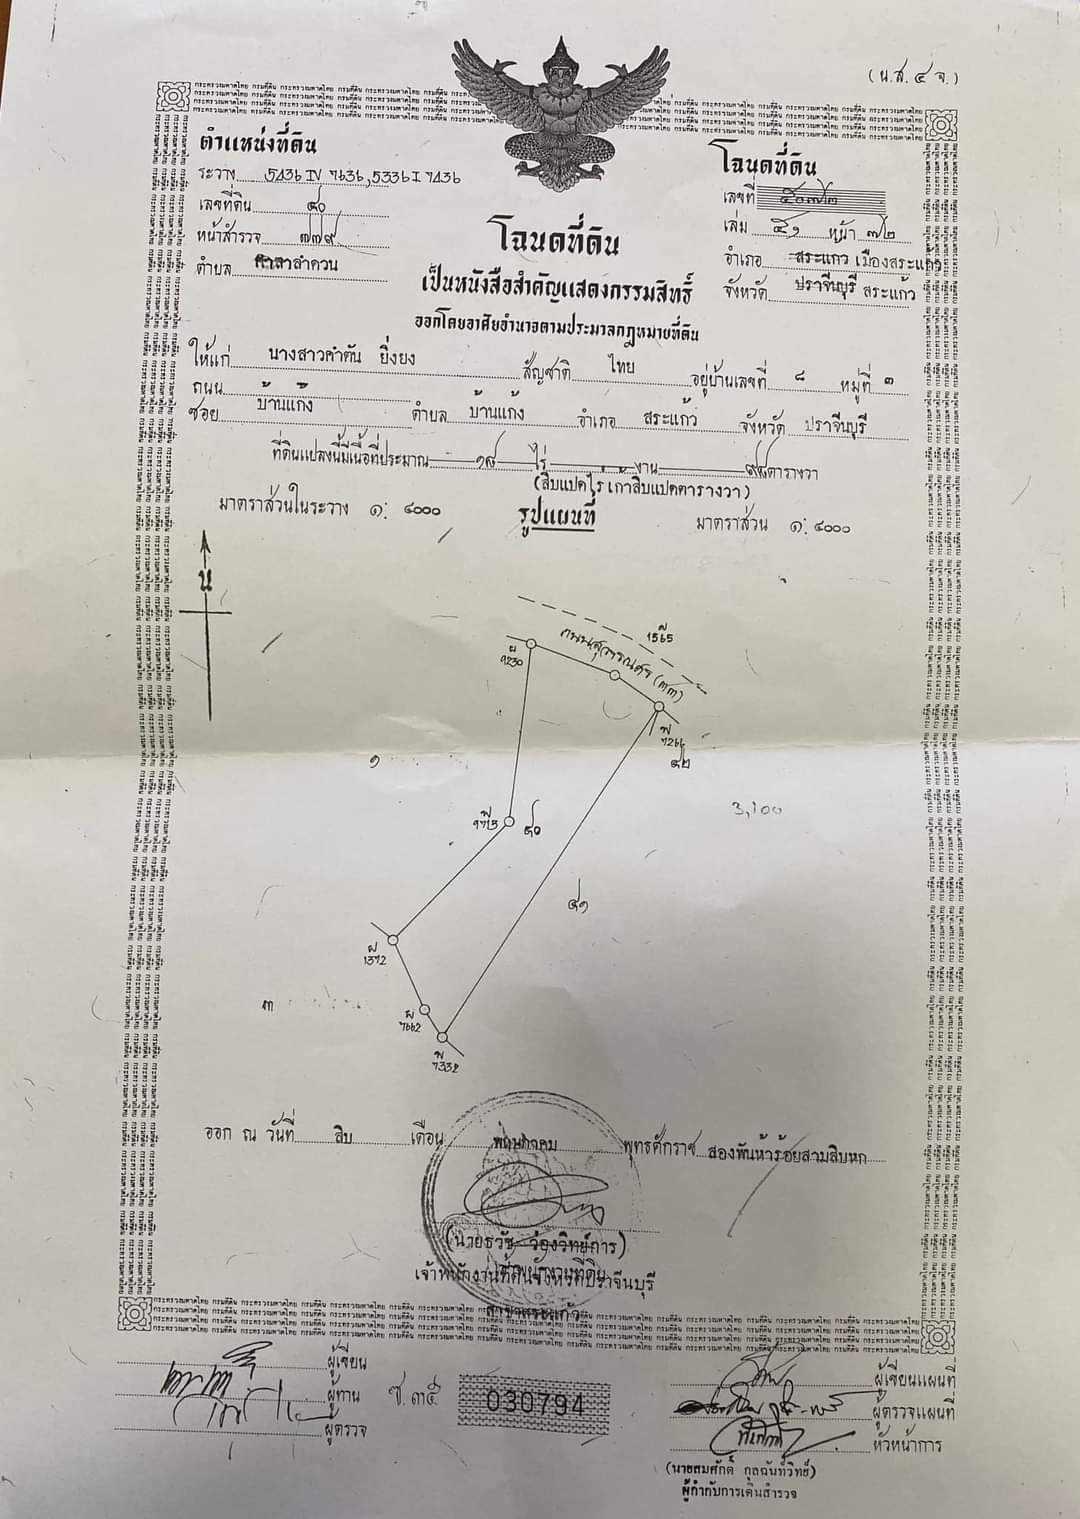 (น.ส. ๔ จ.)
ตำแหน่งที่ดิน
ระวาง 5436 IV 7636, 5336 I 7436
เลขที่ดิน ๘๐
หน้าสำรวจ ๗๗๙
ตำบล ศาลาลำดวน
โฉนดที่ดิน
เลขที่ ๕๐๗๒
เล่ม ๕๑ หน้า ๗๒
อำเภอ สระแก้ว เมืองสระแก้ว
จังหวัด ปราจีนบุรี สระแก้ว
โฉนดที่ดิน
เป็นหนังสือสำคัญแสดงกรรมสิทธิ์
ออกโดยอาศัยอำนาจตามประมวลกฎหมายที่ดิน
ให้แก่ นางสาวคำตัน ยิ่งยง สัญชาติ ไทย อยู่บ้านเลขที่ ๘ หมู่ที่ ๓
ถนน
ซอย บ้านแก้ง ตำบล บ้านแก้ง อำเภอ สระแก้ว จังหวัด ปราจีนบุรี
ที่ดินแปลงนี้มีเนื้อที่ประมาณ ๑๘ ไร่ - งาน ๙๘ ตารางวา
(สิบแปดไร่ เก้าสิบแปดตารางวา)
มาตราส่วนในระวาง ๑: ๔๐๐๐ รูปแผนที่ มาตราส่วน ๑: ๔๐๐๐
น
1565
ถนนสุวรรณศร (๓๓)
9230
7266
๘๒
๑
3,100
๘๐
๘๑
1372
๓
7662
7332
ออก ณ วันที่ สิบ เดือน พฤษภาคม พุทธศักราช สองพันห้าร้อยสามสิบหก
(นายธวัช ว่องวิทย์การ)
เจ้าพนักงานที่ดินจังหวัดปราจีนบุรี
สาขาสระแก้ว
ผู้เขียน
ผู้ทาน
ผู้ตรวจ
030794
ผู้เขียนแผนที่
ผู้ตรวจแผนที่
หัวหน้าการ
(นายสมศักดิ์ กุลฉันท์วิทย์)
ผู้กำกับการเดินสำรวจ